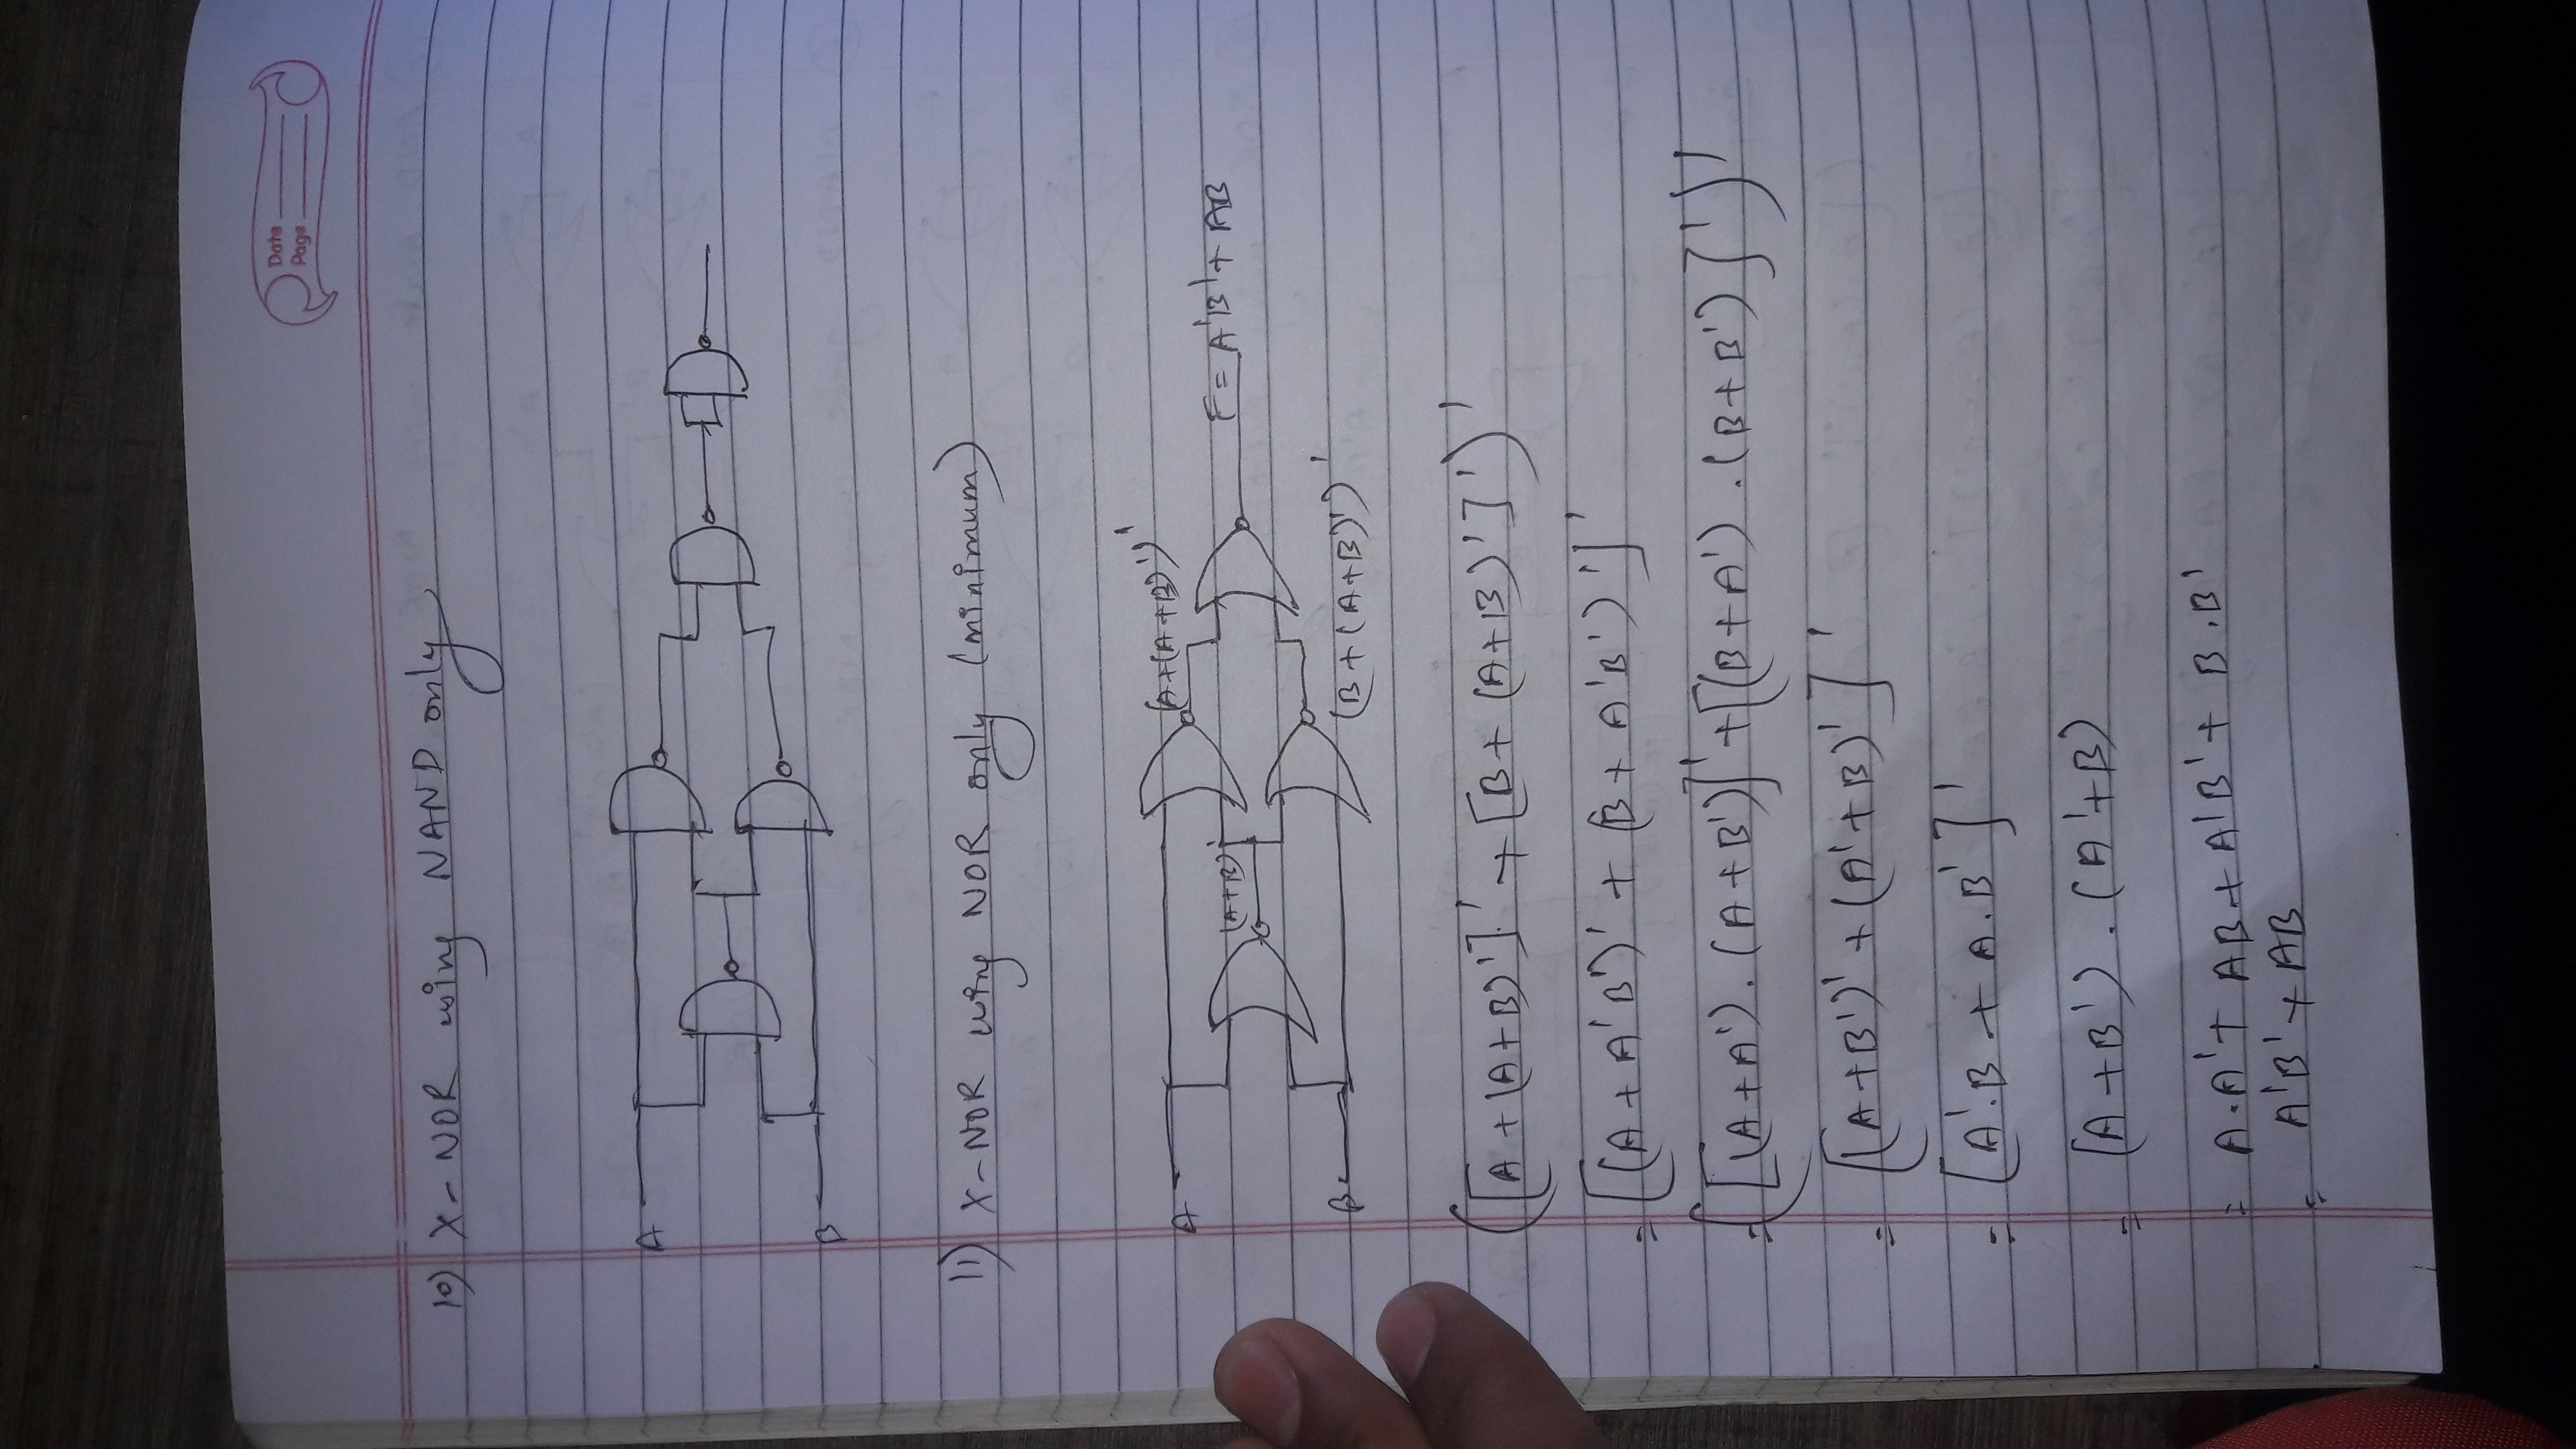 Date
Page
10) X-NOR using NAND only
A
B
11) X-NOR using NOR only (minimum)
A
B
(A+B)'
(A+(A+B)')'
F = A'B' + AB
(B+(A+B)')'
([A+(A+B)']' + [B+(A+B)']')'
= [(A+A'B')' + (B+A'B')']'
= ([(A+A').(A+B')]' + [(B+A').(B+B')]')'
= [(A+B')' + (A'+B)']'
= [A'.B + A.B']'
= (A+B').(A'+B)
= A.A' + AB + A'B' + B.B'
= A'B' + AB